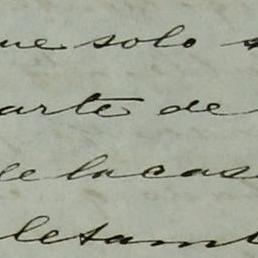 que solo s
arte de
de lacas
letam